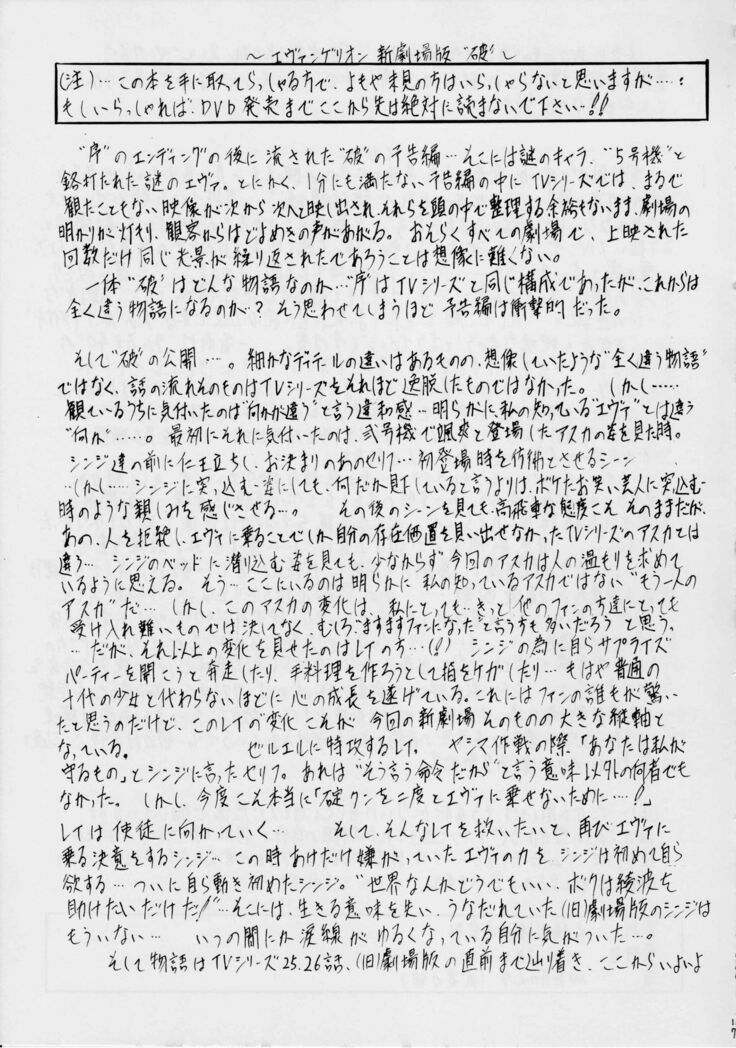 ～エヴァンゲリオン 新劇場版 "破"～
(注)…この本を手に取ってらっしゃる方で、よもや未見の方はいらっしゃらないと思いますが……:
もしいらっしゃれば、DVD発売までここから先は絶対に読まないで下さい…!!
"序"のエンディングの後に流された"破"の予告編…そこには謎のキャラ、"5号機"と
銘打たれた謎のエヴァ。とにかく、1分にも満たない予告編の中にTVシリーズでは、まるで
観たこともない映像が次から次へと映し出され、それらを頭の中で整理する余裕もないまま、劇場の
明かりが灯もり、観客からはどよめきの声があがる。おそらくすべての劇場で、上映された
回数だけ同じ光景が繰り返されたであろうことは想像に難くない。
一体"破"はどんな物語なのか…"序"はTVシリーズと同じ構成であったが、これからは
全く違う物語になるのか?そう思わせてしまうほど予告編は衝撃的だった。
そして"破"の公開…。細かなディテールの違いはあるものの、想像していたような"全く違う物語"
ではなく、話の流れそのものはTVシリーズをそれほど逸脱したものではなかった。しかし……
観ているうちに気付いたのは"何かが違う"と言う違和感…明らかに私の知っている"エヴァ"とは違う
"何か"……。最初にそれに気付いたのは、弐号機で颯爽と登場したアスカの姿を見た時。
シンジ達の前に仁王立ちし、お決まりのあのセリフ…初登場時を彷彿とさせるシーン
…しかし……シンジに突っ込む姿にしても、何だか見下していると言うよりは、ボケたお笑い芸人に突込む
時のような親しみを感じさせる…。その後のシーンを見ても、高飛車な態度こそそのままだが、
あの、人を拒絶し、エヴァに乗ることでしか自分の存在価置を見い出せなかったTVシリーズのアスカとは
違う…シンジのベッドに潜り込む姿を見ても、少なからず今回のアスカは人の温もりを求めて
いるように思える。そう…ここにいるのは明らかに私の知っているアスカではない"もう一人の
アスカ"だ…しかし、このアスカの変化は、私にとっても…きっと他のファンの方達にとっても
受け入れ難いものでは決してなく、むしろ"ますますファンになった"と言う方も多いだろうと思う。
…だが、それ以上の変化を見せたのはレイの方…(!)シンジの為に自らサプライズ
パーティーを開こうと奔走したり、手料理を作ろうとして指をケガしたり…もはや普通の
十代の少女と代わらないほどに心の成長を遂げている。これにはファンの誰もが驚い
たと思うのだけど、このレイの"変化"こそが今回の新劇場そのものの大きな縦軸と
なっている。ゼルエルに特攻するレイ。ヤシマ作戦の際、「あなたは私が
守るもの」とシンジに言ったセリフ。あれは"そう言う命令だから"と言う意味以外の何者でも
なかった。しかし、今度こそ本当に「碇クンを二度とエヴァに乗せないために…!」
レイは使徒に向かっていく…そして、そんなレイを救いたいと、再びエヴァに
乗る決意をするシンジ…この時あけだけ嫌がっていたエヴァの力をシンジは初めて自ら
欲する…ついに自ら動き初めたシンジ。"世界なんかどうでもいい、ボクは綾波を
助けたいだけだ!"…そこには、生きる意味を失い、うなだれていた(旧)劇場版のシンジは
もういない…いつの間にか涙線がゆるくなっている自分に気がついた…。
そして物語はTVシリーズ25.26話、(旧)劇場版の直前まで辿り着き、ここからいよいよ